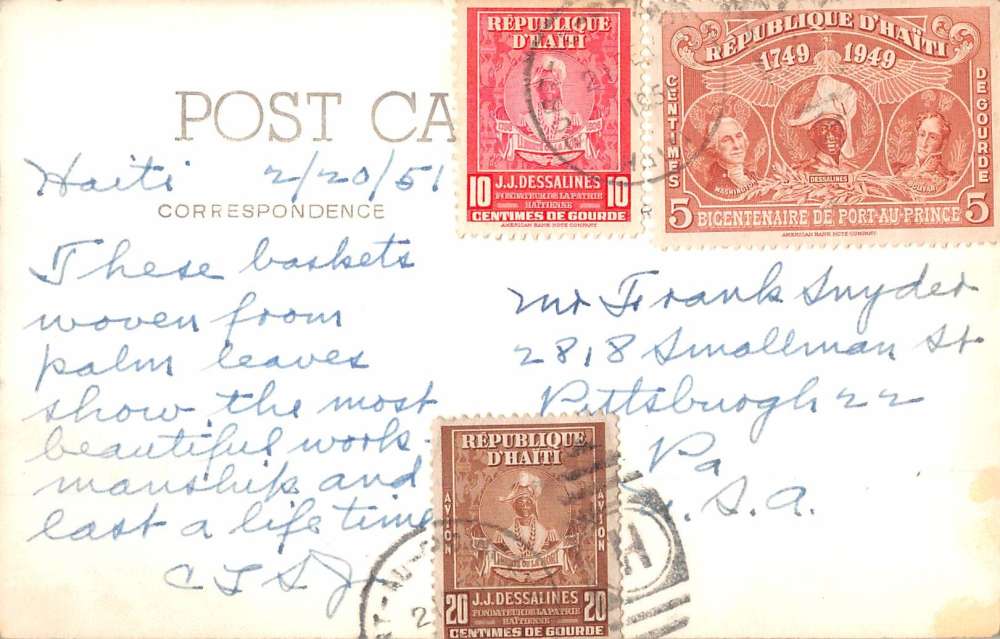 POST CA
Haiti 2/20/51
CORRESPONDENCE
These baskets
woven from
palm leaves
show the most
beautiful work-
manship and
last a life time
RÉPUBLIQUE
D'HAÏTI
10 J.J. DESSALINES 10
FONDATEUR DE LA PATRIE
HAÏTIENNE
CENTIMES DE GOURDE
AMERICAN BANK NOTE COMPANY
RÉPUBLIQUE D'HAÏTI
1749 1949
CENTIMES
DE GOURDE
WASHINGTON
DESSALINES
BOLIVAR
5 BICENTENAIRE DE PORT-AU-PRINCE 5
AMERICAN BANK NOTE COMPANY
Mr Frank Snyder
2818 Smallman St
Pittsburgh 22
Pa
S.A.
RÉPUBLIQUE
D'HAÏTI
AVION
AVION
LIBERTÉ OU LA MORT
20 J.J. DESSALINES 20
FONDATEUR DE LA PATRIE
HAÏTIENNE
CENTIMES DE GOURDE